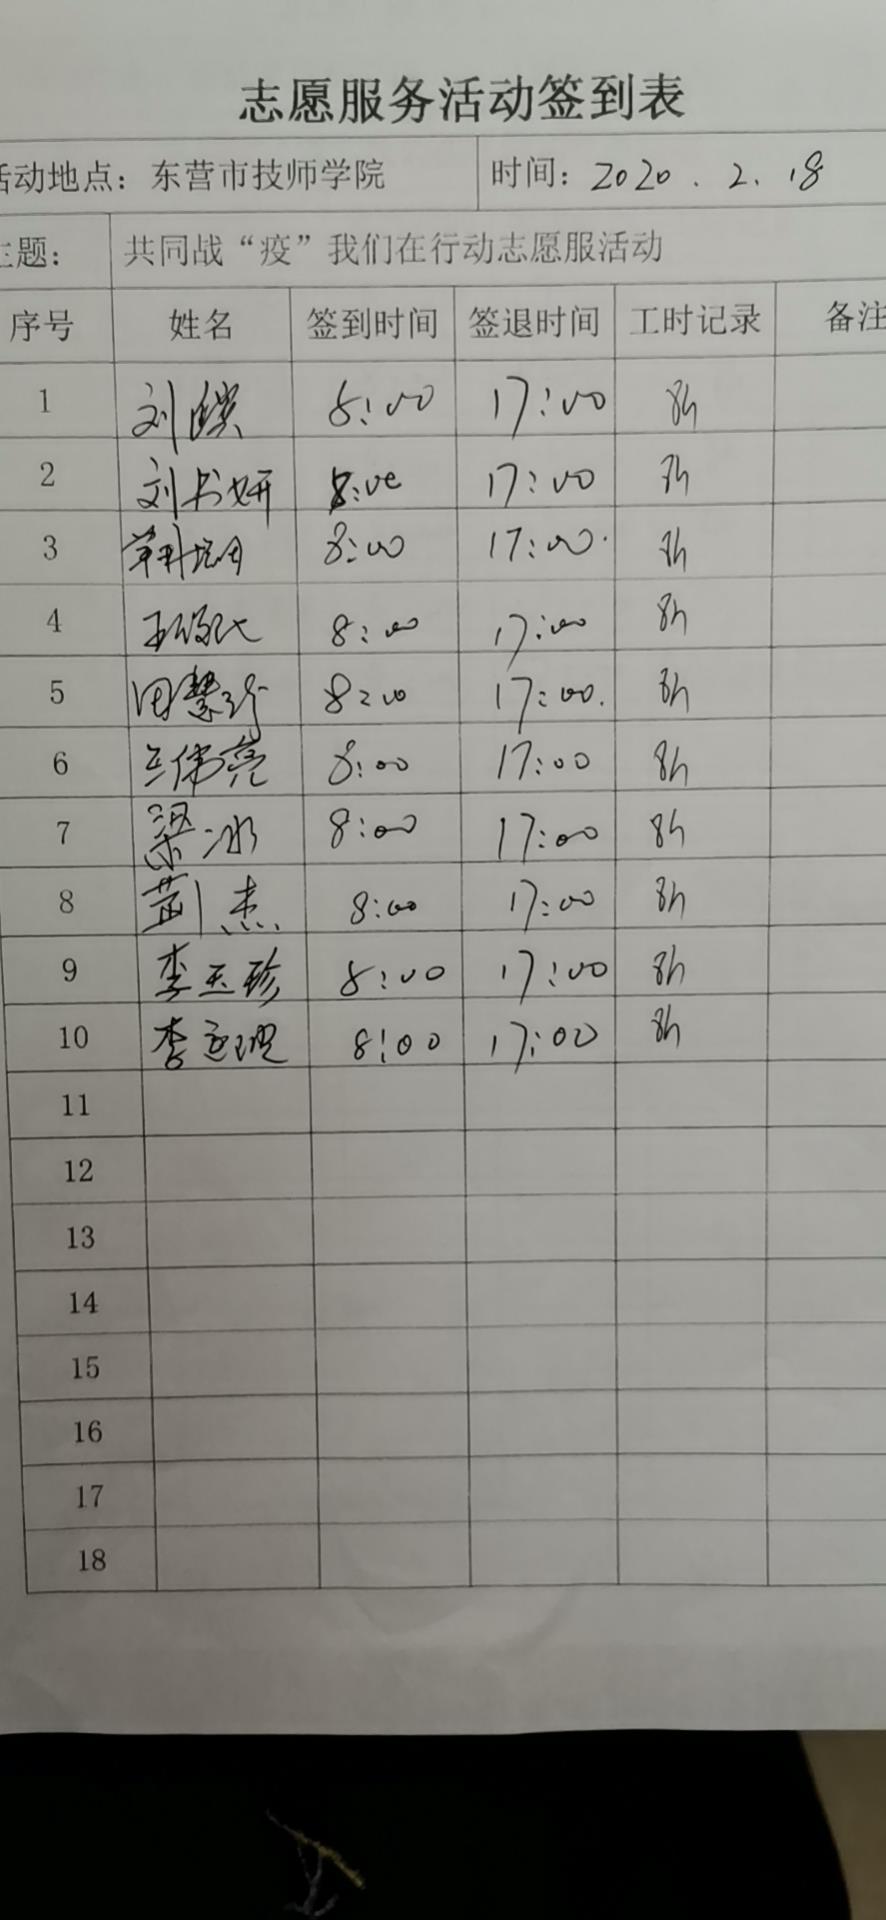 志愿服务活动签到表
活动地点：东营市技师学院 时间：2020.2.18
主题： 共同战“疫”我们在行动志愿服活动
序号 姓名 签到时间 签退时间 工时记录 备注
1 刘 8:00 17:00 8h
2 刘书妍 8:00 17:00 8h
3 8:00 17:00 8h
4 8:00 17:00 8h
5 田慧 8:00 17:00 8h
6 兰伟亮 8:00 17:00 8h
7 梁冰 8:00 17:00 8h
8 荆杰 8:00 17:00 8h
9 李玉珍 8:00 17:00 8h
10 李 8:00 17:00 8h
11
12
13
14
15
16
17
18